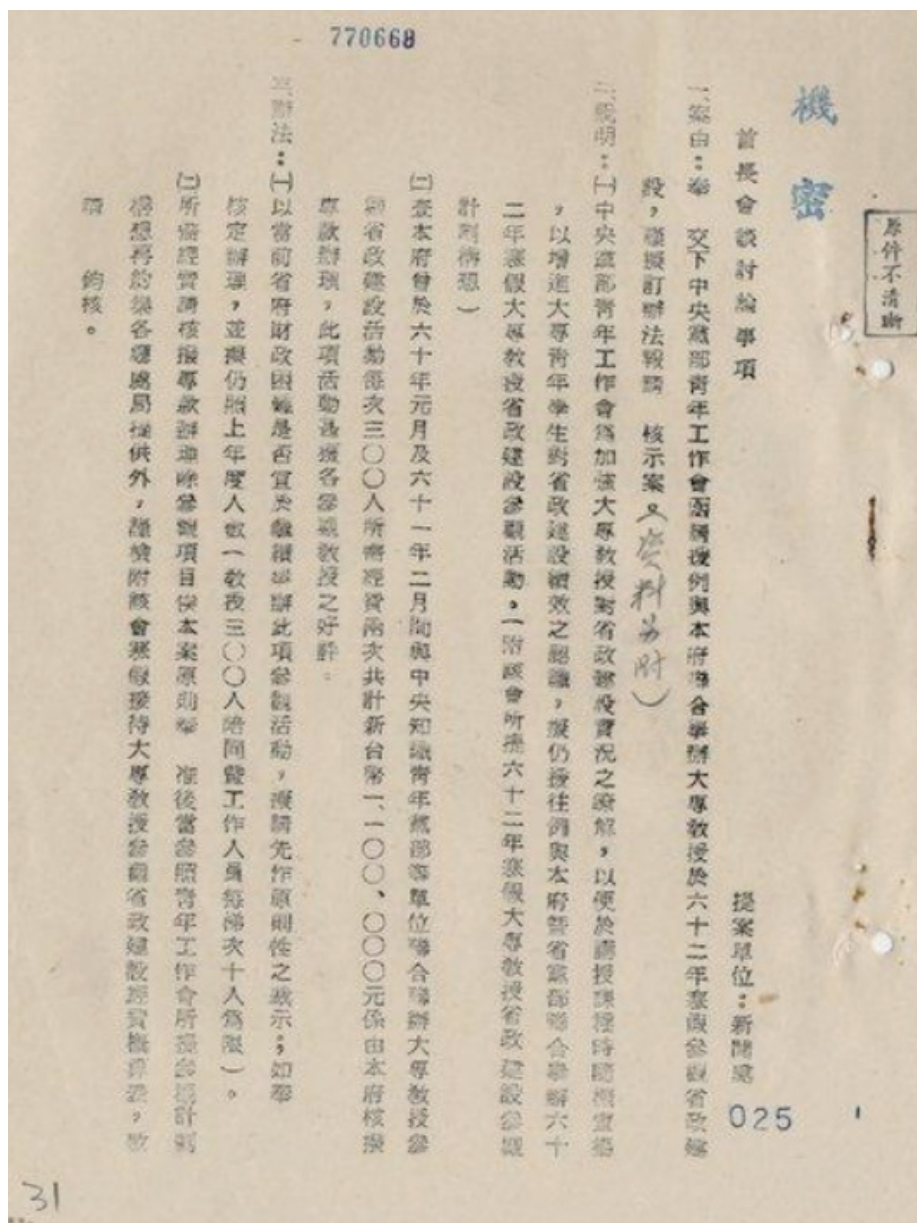 770668
機密
原件不清晰
首長會談討論事項
提案單位：新聞處
一、案由：奉　交下中央黨部青年工作會函請援例與本府聯合舉辦大專教授於六十二年寒假參觀省政建
設，謹擬訂辦法報請　核示案。（資料另附）
二、說明：㈠中央黨部青年工作會為加強大專教授對省政建設實況之瞭解，以便於講授課程時隨機宣導
，以增進大專青年學生對省政建設績效之認識，擬仍援往例與本府暨省黨部聯合舉辦六十
二年寒假大專教授省政建設參觀活動。（附該會所提六十二年寒假大專教授省政建設參觀
計劃構想）
㈡查本府曾於六十年元月及六十一年二月間與中央知識青年黨部等單位聯合舉辦大專教授參
觀省政建設活動每次三〇〇人所需經費兩次共計新台幣一、一〇〇、〇〇〇元係由本府核撥
專款辦理，此項活動甚獲各參觀教授之好評。
三、辦法：㈠以當前省府財政困難是否宜於繼續舉辦此項參觀活動，擬請先作原則性之裁示；如奉
核定辦理，並擬仍照上年度人數（教授三〇〇人陪同暨工作人員每梯次十人為限）。
㈡所需經費請核撥專款辦理除參觀項目俟本案原則奉　准後當參照青年工作會所提參觀計劃
構想再約集各廳處局提供外，謹檢附該會寒假接待大專教授參觀省政建設經費概算表，敬
請　鈞核。
025
31